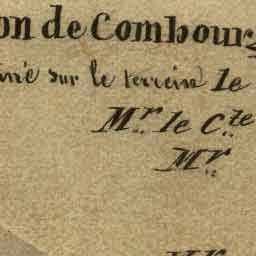 on de Combour
sur le terrein le
Mr. le Cte.
Mr.